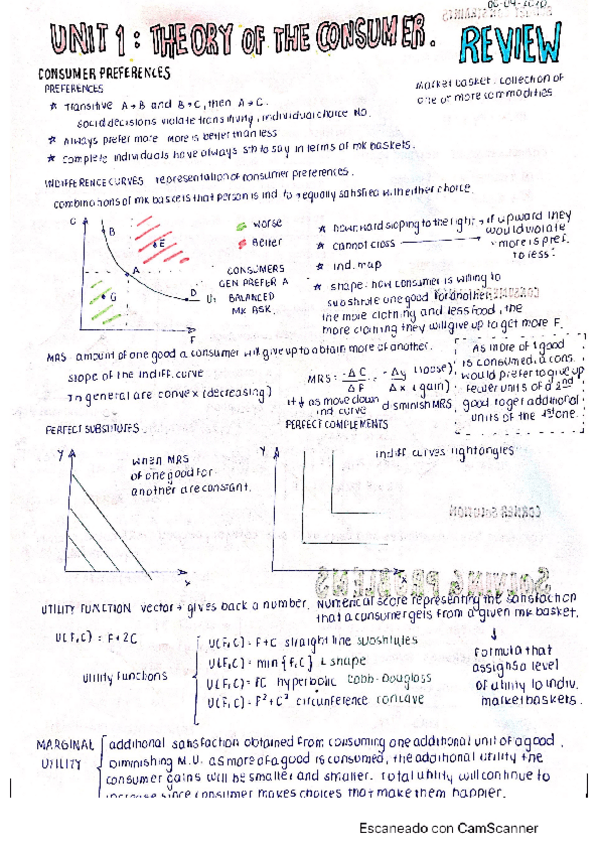 06-04-2020
UNIT 1: THEORY OF THE CONSUMER. REVIEW
CONSUMER PREFERENCES
PREFERENCES
Market basket: collection of
one or more commodities
* Transitive A→B and B→C, then A→C.
social decisions violate transitivity, individual choice no.
* Always prefer more more is better than less
* complete individuals have always sth to say in terms of mk baskets.
INDIFFERENCE CURVES representation of consumer preferences.
combinations of mk baskets that person is ind to → equally satisfied with either choice.
C
B
E
A
G
D
U1
F
worse
Better
CONSUMERS
GEN PREFER A
BALANCED
MK BASK.
* downward sloping to the right → if upward they
would violate
"more is pref.
to less"
* cannot cross
* ind. map
* shape: how consumer is willing to
substitute one good for another.
the more clothing and less food, the
more clothing they will give up to get more F.
MRS amount of one good a consumer will give up to obtain more of another.
slope of the indiff. curve
In general are convex (decreasing)
MRS: -ΔC/ΔF = -Δy (loose)/Δx (gain)
it ↓ as move down
ind curve diminish MRS
As more of 1 good
is consumed, a cons.
would prefer to give up
fewer units of a 2nd
good to get additional
units of the 1st one.
PERFECT SUBSTITUTES
PERFECT COMPLEMENTS
Y
x
when MRS
of one good for
another are constant.
Y
x
indiff curves right angles
UTILITY FUNCTION vector → gives back a number. Numerical score representing the satisfaction
that a consumer gets from a given mk basket.
U(F,C) = F+2C
Utility Functions
U(F,C)= F+C straight line substitutes
U(F,C)= min{F,C} L shape
U(F,C)= FC hyperbolic Cobb-Douglass
U(F,C)= F²+C² circunference concave
↓
Formula that
assigns a level
of utility to indiv.
market baskets.
MARGINAL UTILITY
additional satisfaction obtained from consuming one additional unit of a good.
Diminishing M.U. as more of a good is consumed, the additional utility the
consumer gains will be smaller and smaller. Total utility will continue to
increase since consumer makes choices that make them happier.
Escaneado con CamScanner